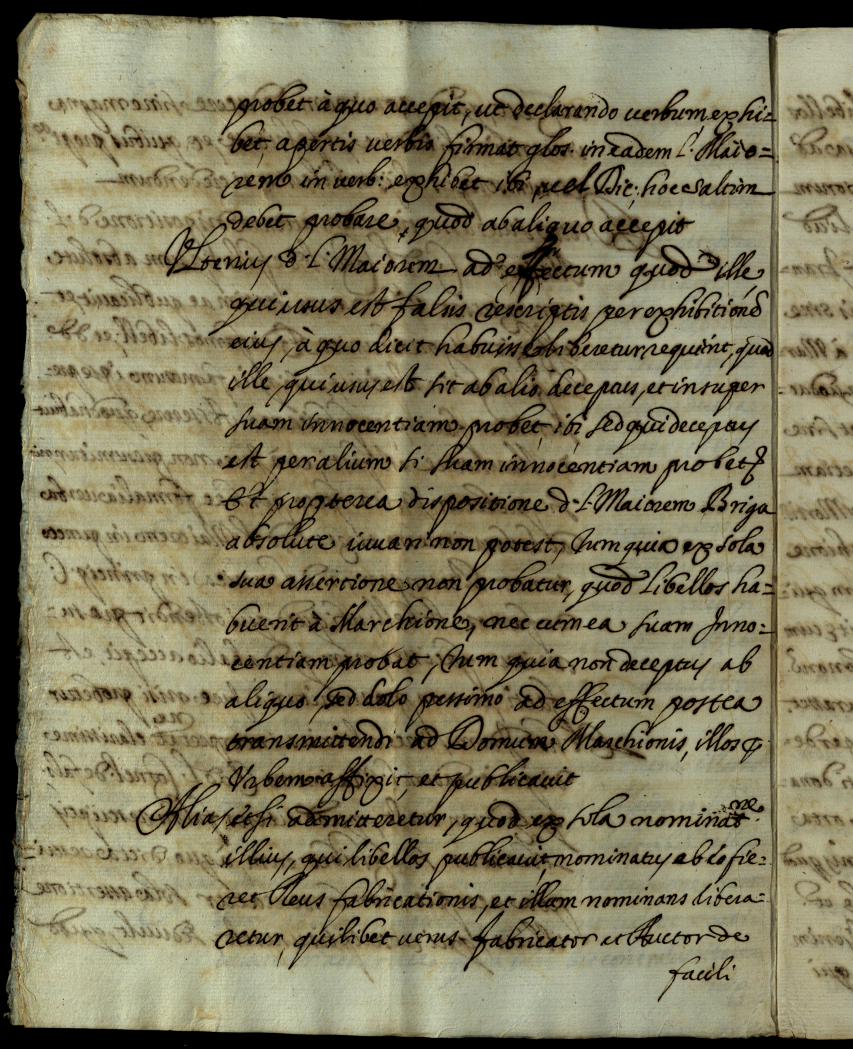 probet à quo accepit, ut declarando verbum exhi=
bet apertis verbis firmat glos. in eadem l. Maio=
rem in verb: exhibet ibi vel Dic: hoc saltim
debet probare, quod ab aliquo accepit
Ulterius d. l. Maiorem ad effectum quod ille,
qui usus est falsis rescriptis per exhibitionē
eius, à quo dicit habuisse liberetur, requirit, quod
ille, qui usus est sit ab alio deceptus, et insuper
suam innocentiam probet, ibi sed qui deceptus
est per alium si suam innocentiam probet
Et propterea dispositione d. l. Maiorem Briga
absolute iuvari non potest, tum quia ex sola
sua assertione non probatur, quod Libellos ha=
buerit à Marchione, nec cum ea suam Inno=
centiam probat, tum quia non deceptus ab
aliquo sed dolo pessimo ad effectum postea
transmittendi ad Domum Marchionis, illos p
Urbem affixit, et publicavit
Alias etsi admitteretur, quod ex sola nominatne.
illius, qui libellos publicavit, nominatus ab eo fie=
ret Reus fabricationis, et illam nominans libera=
retur, quilibet verus fabricator et Auctor de
facili